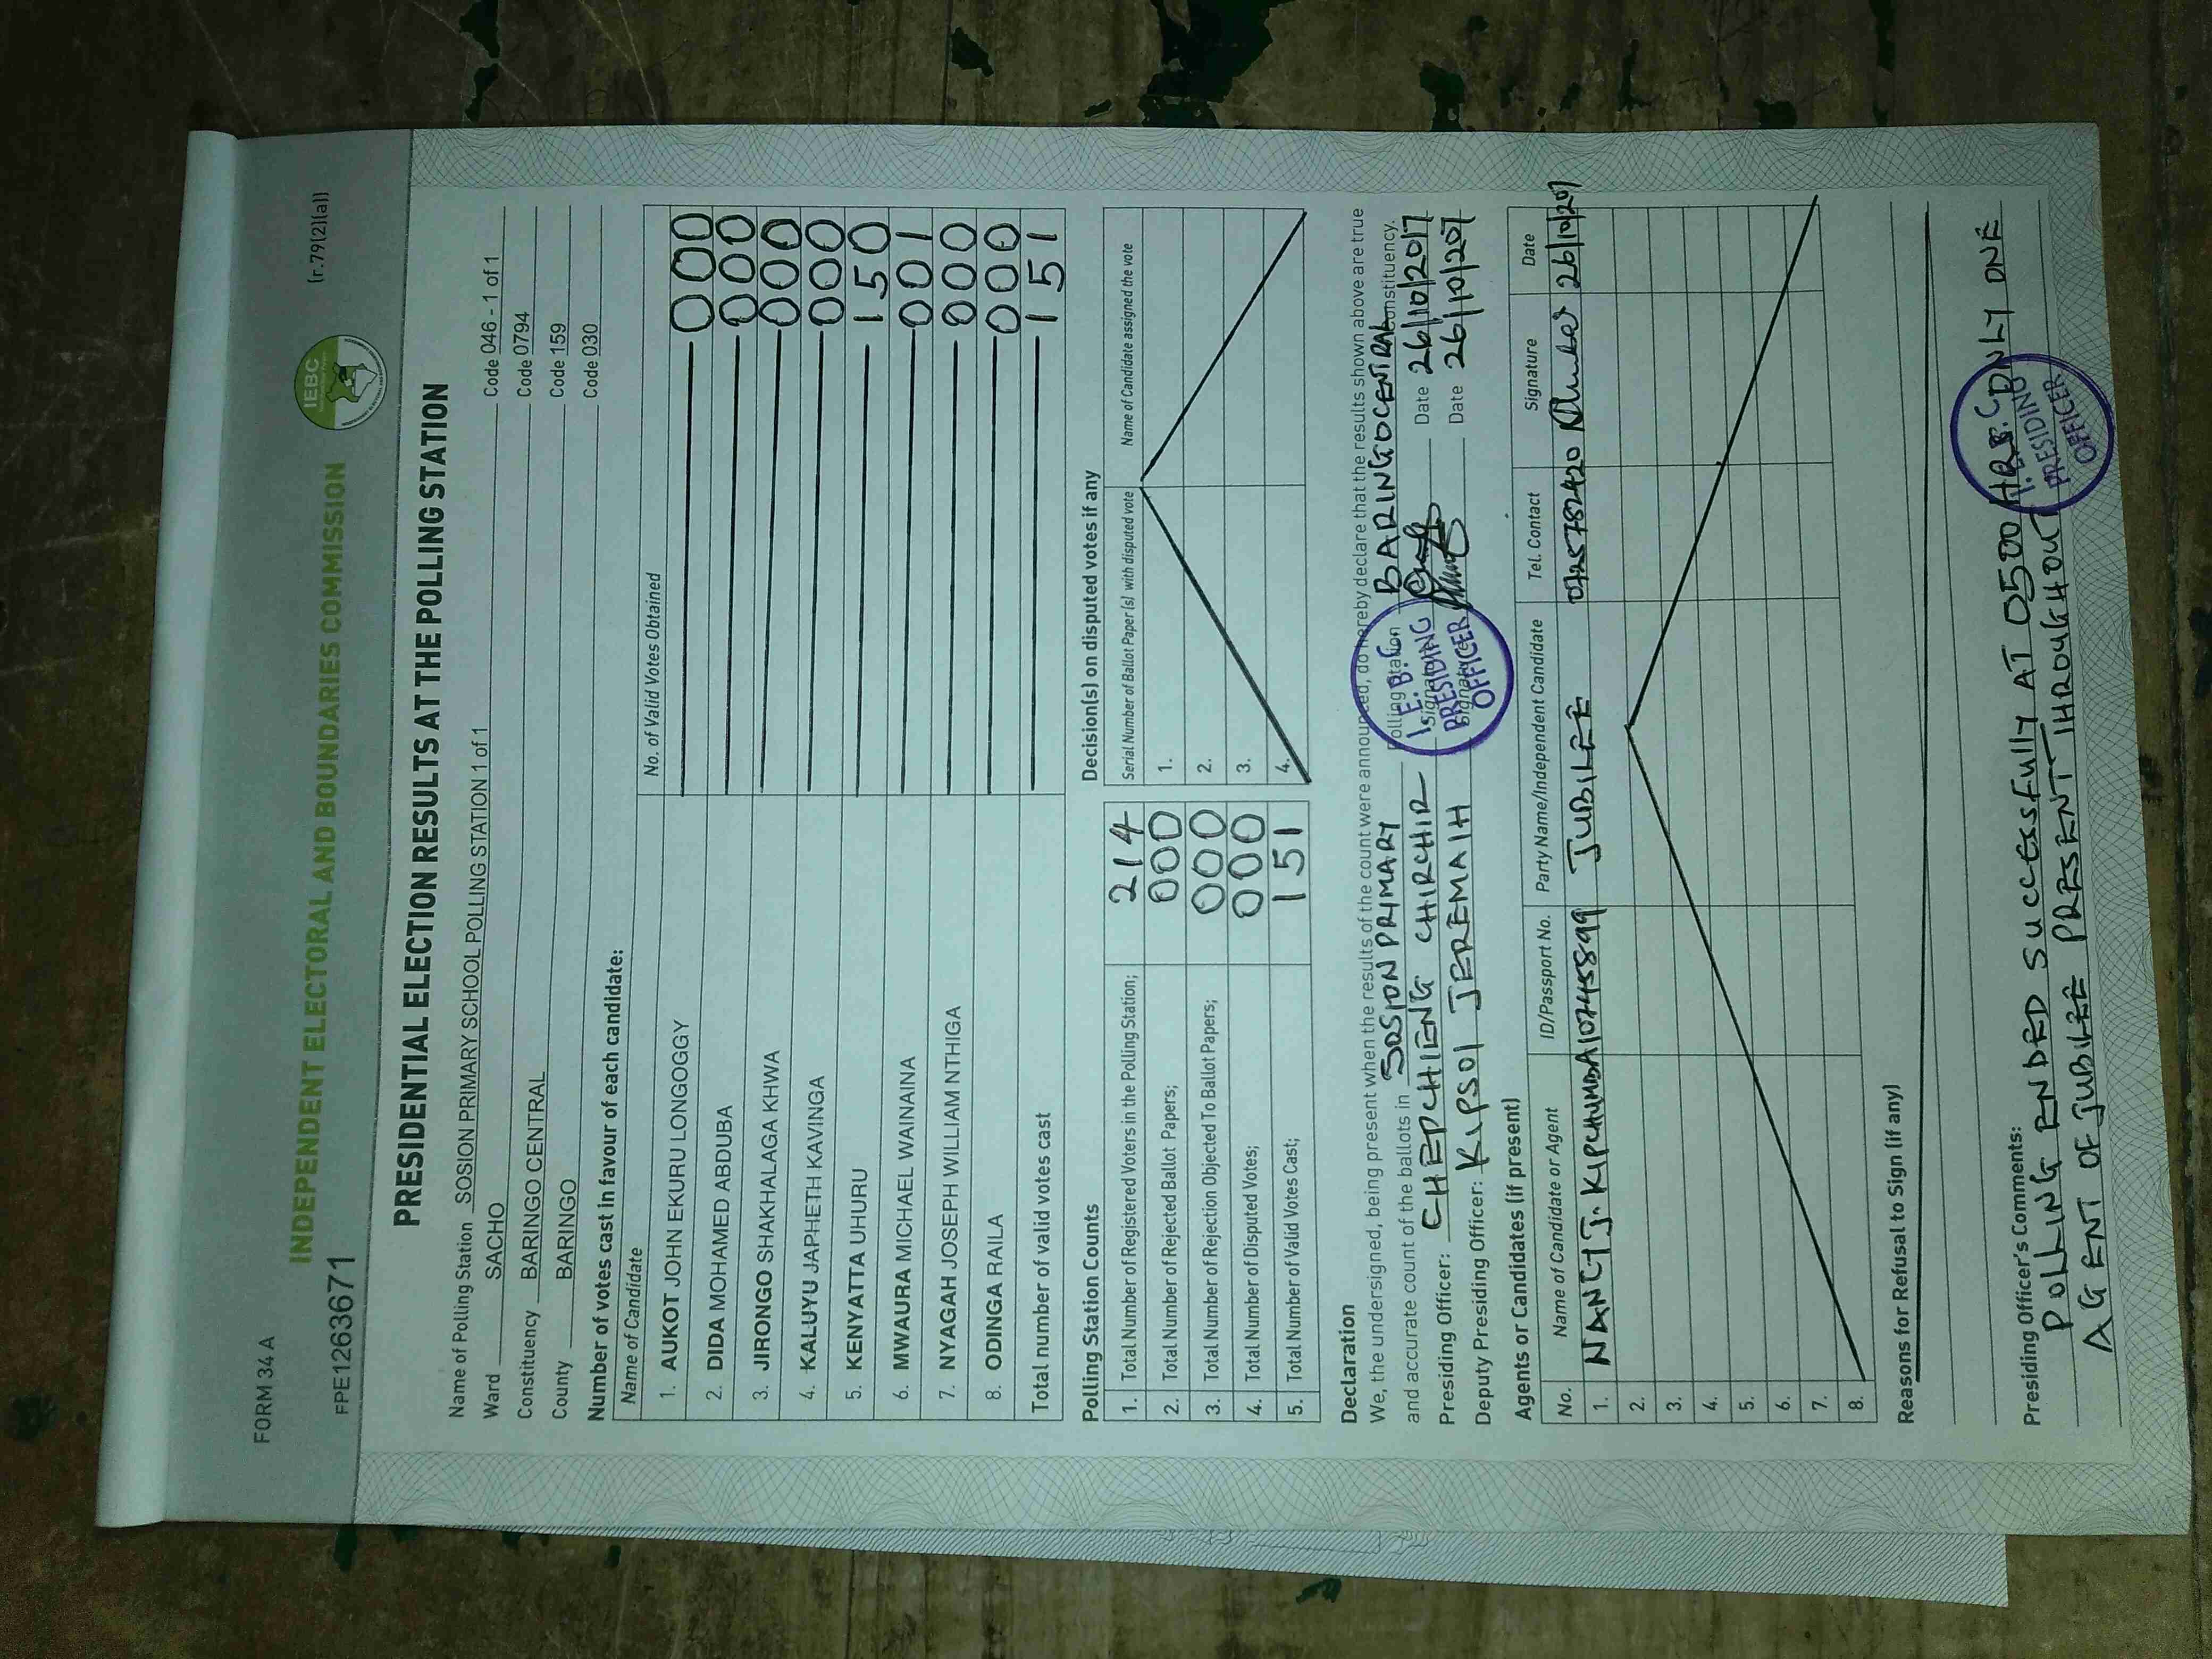 FORM 34 A
(r.79(2)(a))
IEBC
INDEPENDENT ELECTORAL AND BOUNDARIES COMMISSION
FPE1263671
PRESIDENTIAL ELECTION RESULTS AT THE POLLING STATION
Name of Polling Station SOSION PRIMARY SCHOOL POLLING STATION 1 of 1 Code 046 - 1 of 1
Ward SACHO Code 0794
Constituency BARINGO CENTRAL Code 159
County BARINGO Code 030
Number of votes cast in favour of each candidate:
Name of Candidate No. of Valid Votes Obtained
1. AUKOT JOHN EKURU LONGOGGY 000
2. DIDA MOHAMED ABDUBA 000
3. JIRONGO SHAKHALAGA KHWA 000
4. KALUYU JAPHETH KAVINGA 000
5. KENYATTA UHURU 150
6. MWAURA MICHAEL WAINAINA 001
7. NYAGAH JOSEPH WILLIAM NTHIGA 000
8. ODINGA RAILA 000
Total number of valid votes cast 151
Polling Station Counts
1. Total Number of Registered Voters in the Polling Station; 214
2. Total Number of Rejected Ballot Papers; 000
3. Total Number of Rejection Objected To Ballot Papers; 000
4. Total Number of Disputed Votes; 000
5. Total Number of Valid Votes Cast; 151
Decision(s) on disputed votes if any
Serial Number of Ballot Paper (s) with disputed vote Name of Candidate assigned the vote
1.
2.
3.
4.
Declaration
We, the undersigned, being present when the results of the count were announced, do hereby declare that the results shown above are true
and accurate count of the ballots in SOSION PRIMARY Polling Station BARINGO CENTRAL Constituency.
Presiding Officer: CHEPCHIENG CHIRCHIR Signature Date 26/10/2017
Deputy Presiding Officer: KIPSOI JEREMAIH Signature Date 26/10/2017
I.E.B.C
PRESIDING
OFFICER
Agents or Candidates (if present)
No. Name of Candidate or Agent ID/Passport No. Party Name/Independent Candidate Tel. Contact Signature Date
1. NANCY J. KIPCHUMBA JUBILEE 0725782420 26/10/2017
2.
3.
4.
5.
6.
7.
8.
Reasons for Refusal to Sign (if any)
Presiding Officer's Comments:
POLLING ENDED SUCCESSFULLY AT 0500 HRS. ONLY ONE
AGENT OF JUBILEE PRESENT THROUGHOUT
I.E.B.C
PRESIDING
OFFICER